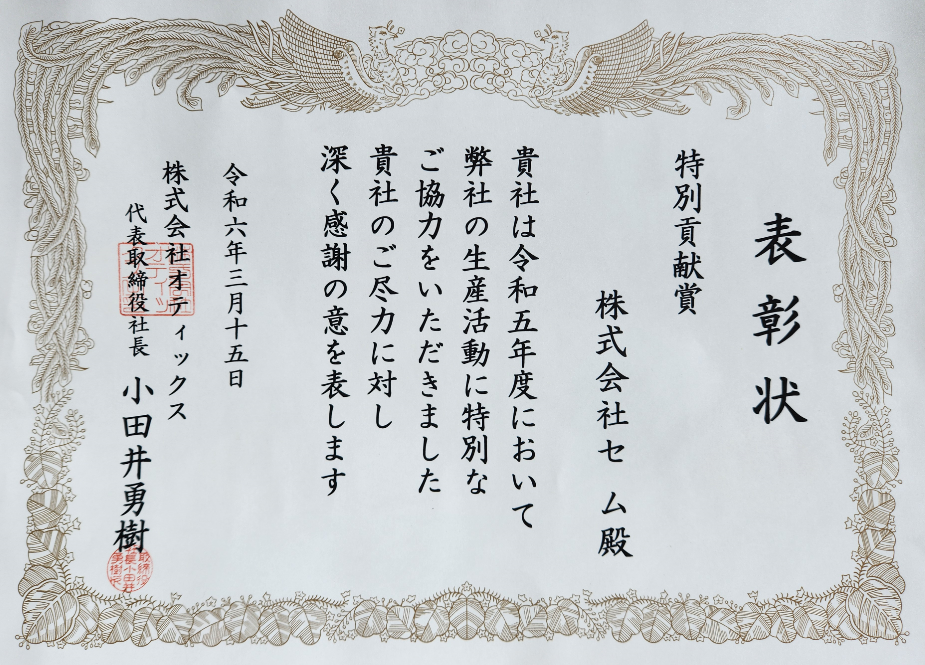 表彰状
特別貢献賞
株式会社セム殿
貴社は令和五年度において
弊社の生産活動に特別な
ご協力をいただきました
貴社のご尽力に対し
深く感謝の意を表します
令和六年三月十五日
株式会社オティックス
代表取締役社長 小田井勇樹